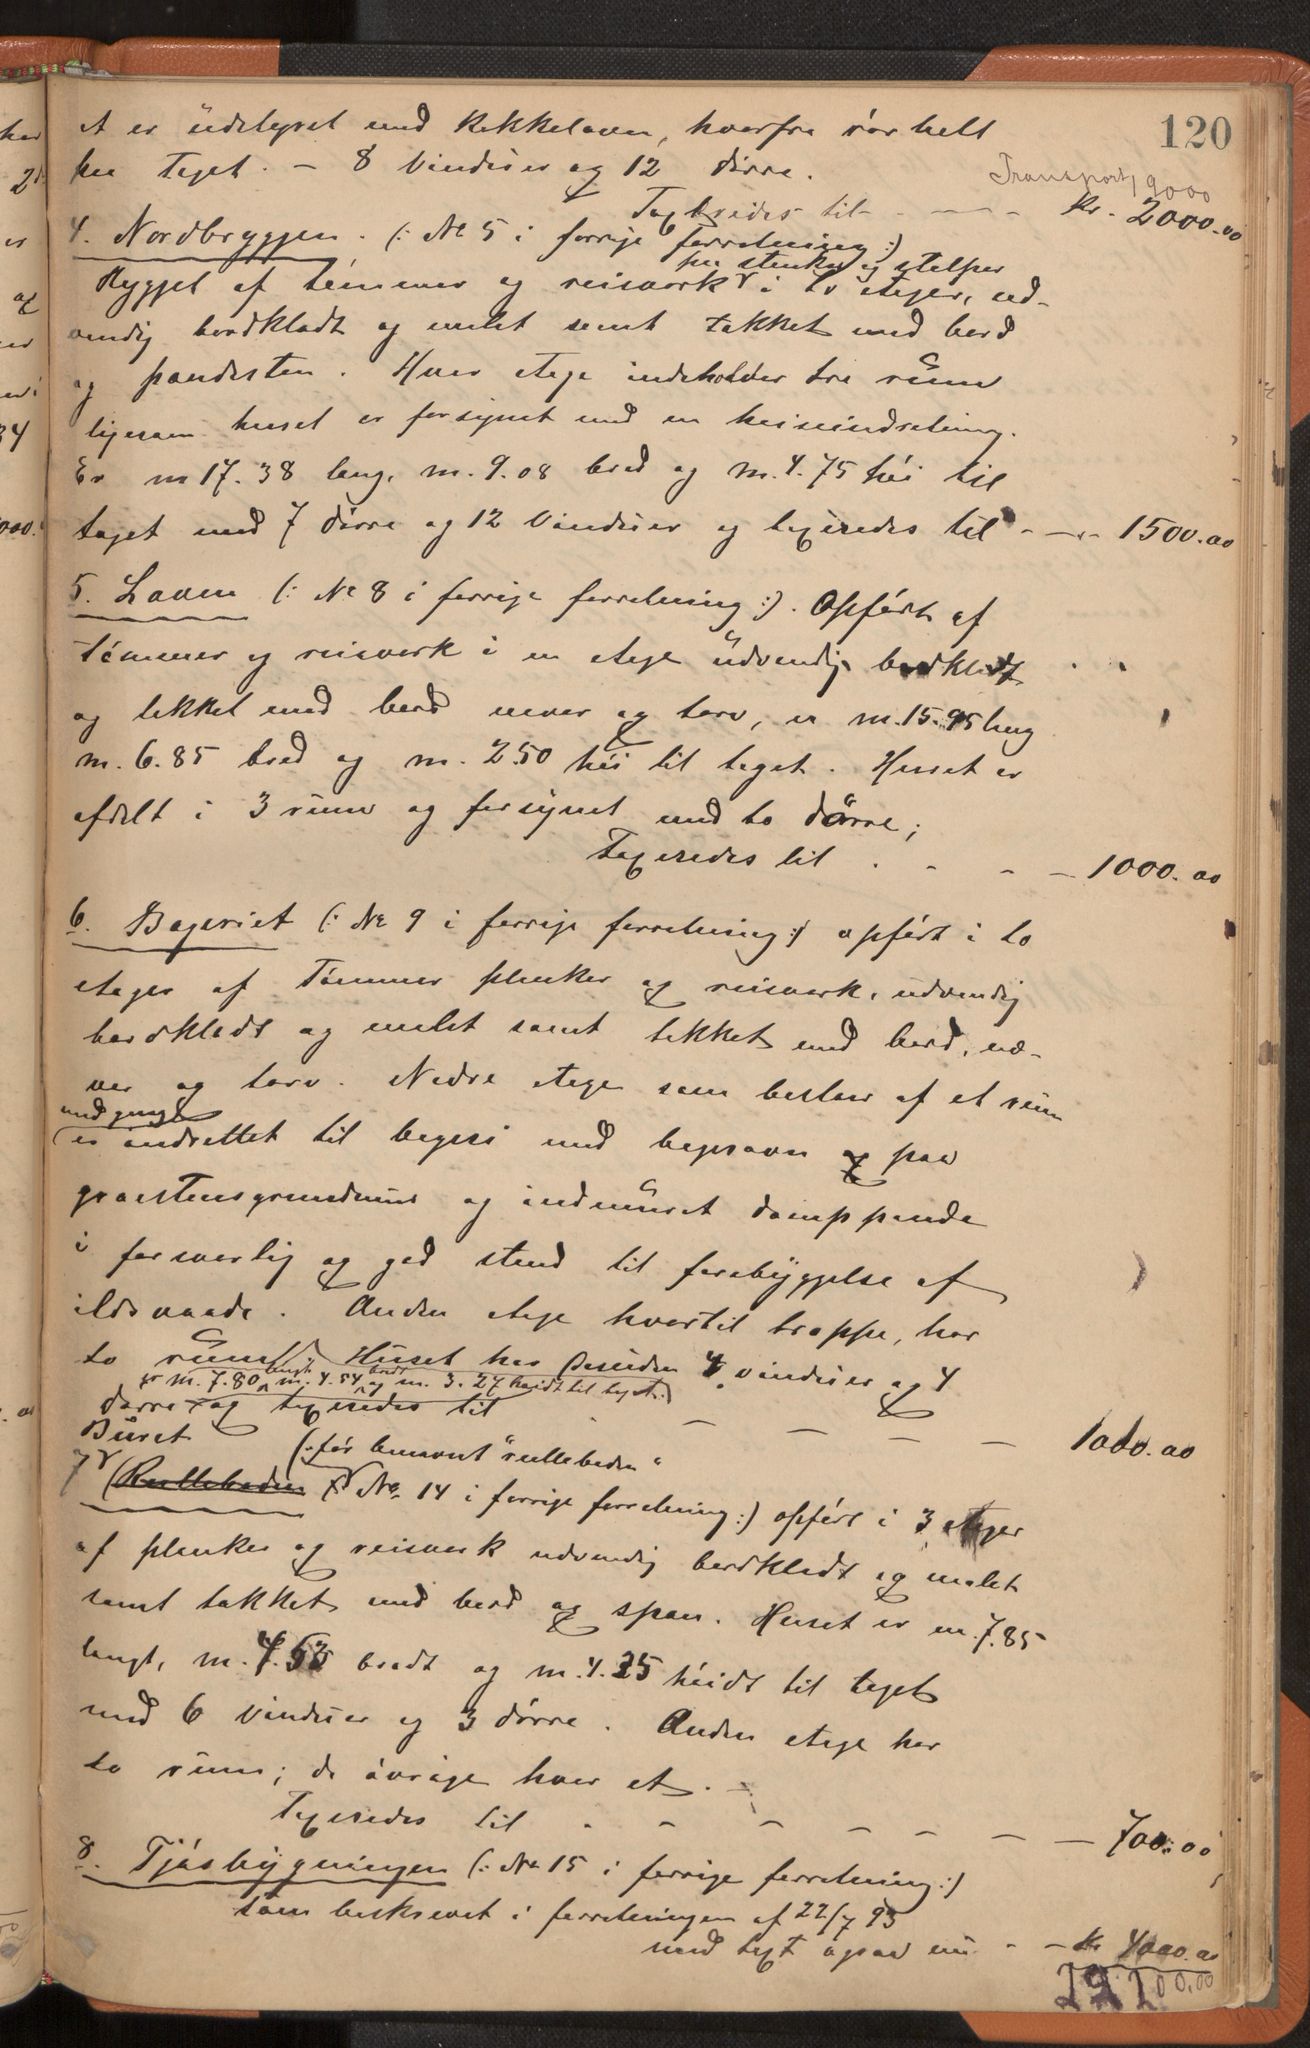 120
et er üdstyret med Kakkelovn, hvorfra rör helt
paa taget. - 8 Vindüer og 12 dörre.
Transport 19000
Taxeredes til - - - - Kr. 2000.00
4. Nordbryggen. (: № 5 i forrige forretning :)
paa stenkar og stolper
Bygget af tömmer og reisverk i to etager, ud-
vendig bordklædt og malet samt tækket med bord
og pandesten. Hver etage indeholder tre rüm
ligesom huset er forsynet med en heiseindretning.
Er m 17.38 lang, m. 9.08 bred og m. 4.75 höi til
taget med 7 dörre og 12 Vindüer og taxeredes til - - - 1500.00
5. Laven (: № 8 i forrige forretning :). Opfört af
tömmer og reisverk i en etage üdvendig bordklædt
og tækket med bord næver og torv, er m. 15.95 lang
m. 6.85 bred og m. 2.50 höi til taget. Huset er
afdelt i 3 rüm og forsynet med to dörre;
Taxeredes til . - - - 1000.00
6. Bageriet (: № 9 i forrige forretning :) opfört i to
etager af Tömmer planker og reisverk, udvendig
bordklædt og malet samt tækket med bord, næ-
ver og torv. Nedre etage som bestaar af et rüm
med gang
er indrettet til bageri med bagerovn og paa
graastensgrundmur og indmüret damppande
i forsvarlig og god stand til forebyggelse af
ildsvaade. Anden etage hvortil trappe, har
to rüm. Hüset har desuden 4 vindüer og 4
er m. 7.80 langt m. 4.54 bredt og m. 3.27 höidt til taget
dörre og taxeredes til - - - - 1000.00
Büret (: för benævnt "rulleboden"
7 Rulleboden № 14 i forrige forretning :) opfört i 3 etager
af planker og reisverk udvendig bordklædt og malet
samt tækket med bord og spon. Huset er m. 7.85
langt, m. 4.53 bredt og m. 4.25 höidt til taget
med 6 Vindüer og 3 dörre. Anden etage har
to rüm; de övrige hver et. -
Taxeredes til . - - - - - - 700.00
8. Fjösbygningen (: № 15 i forrige forretning :)
som beskrevet i forretningen af 22/7 93
med taxt ogsaa nu - - Kr 4000.00
29200.00